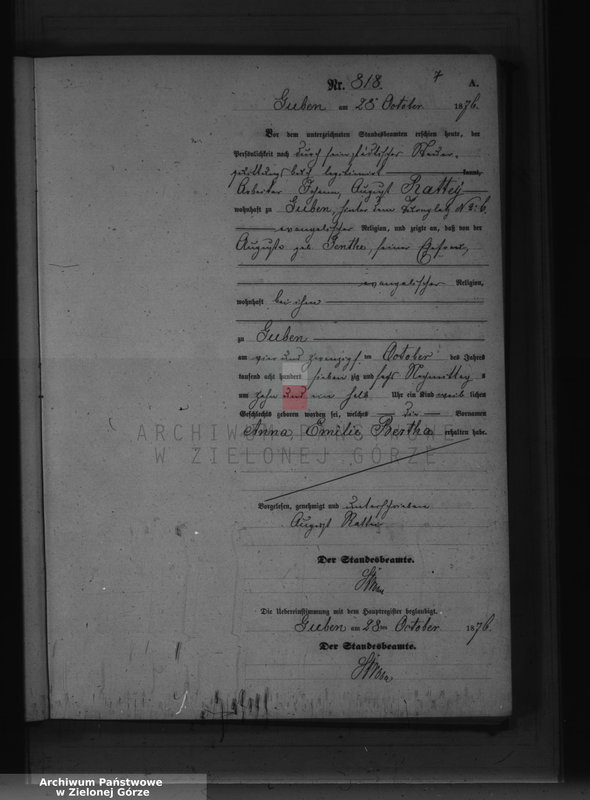 7
Nr. 818. A.
Guben am 28 October 1876.
Vor dem unterzeichneten Standesbeamten erschien heute, der
Persönlichkeit nach durch seine städtischer Steuer-
quittungsbuch legitimirt kannt,
Arbeiter Johann, August Rattey
wohnhaft zu Guben, hinter dem No 2:6,
evangelischer Religion, und zeigte an, daß von der
Auguste geb. Gentke, seiner Ehefrau,
evangelischer Religion,
wohnhaft bei ihm
zu Guben
am vier und zwanzigst. ten October des Jahres
tausend acht hundert sieben zig und sechs Nachmittag s
um zehn und ein halb Uhr ein Kind weib lichen
Geschlechts geboren worden sei, welches die Vornamen
Anna, Emilie Bertha erhalten habe.
ARCHIWUM PAŃSTWOWE
W ZIELONEJ GÓRZE
Vorgelesen, genehmigt und unterschrieben
August Rattei
Der Standesbeamte.
Die Uebereinstimmung mit dem Hauptregister beglaubigt.
Guben am 28ten October 1876.
Der Standesbeamte.
Archiwum Państwowe
w Zielonej Górze